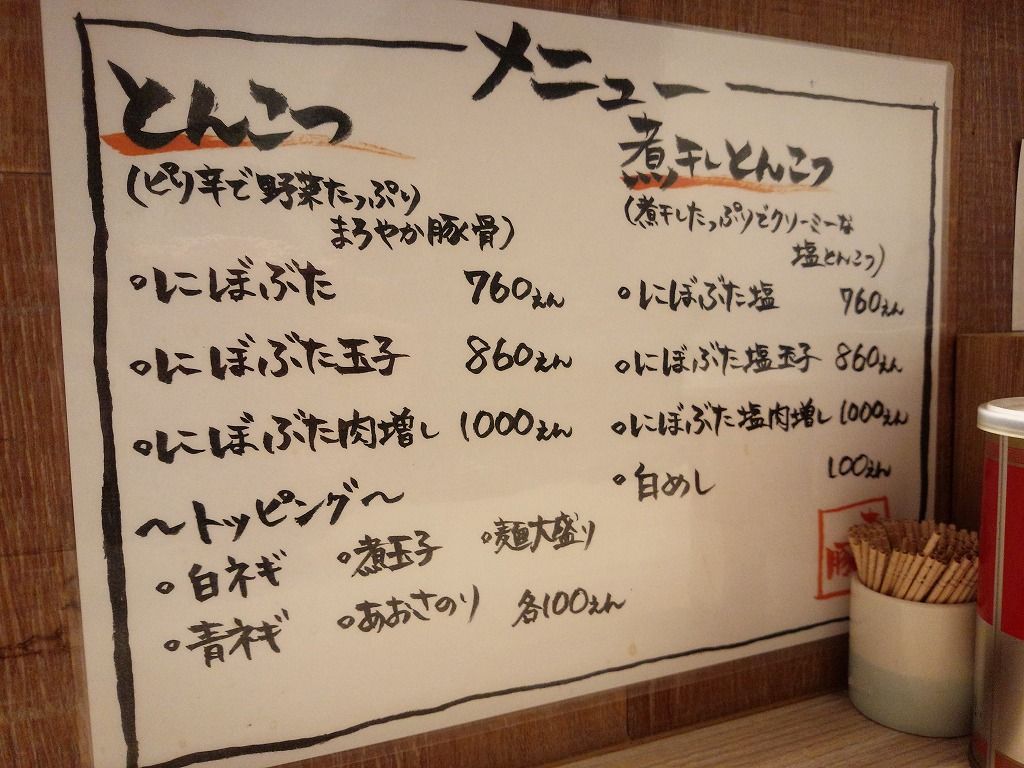 メニュー
とんこつ
(ピリ辛で野菜たっぷり
まろやか豚骨)
。にぼぶた 760えん
。にぼぶた玉子 860えん
。にぼぶた肉増し 1000えん
〜トッピング〜
。白ネギ 。煮玉子 。麺大盛り
。青ネギ 。あおさのり 各100えん
煮干しとんこつ
(煮干したっぷりでクリーミーな
塩とんこつ)
。にぼぶた塩 760えん
。にぼぶた塩玉子 860えん
。にぼぶた塩肉増し 1000えん
。白めし 100えん
豚